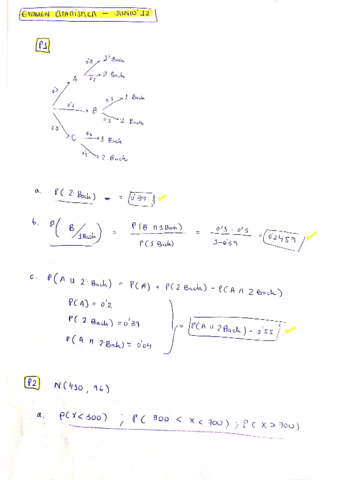 EXAMEN ESTADÍSTICA – JUNIO'12
P1
1º Bach
A
2 Bach
1 Bach
B
2 Bach
1 Bach
C
2 Bach
a. P(2 Bach) = 0'39
b. P(B/1Bach) = P(B ∩ 1Bach) / P(1 Bach) = 0'3 · 0'5 / 1-0'39 = 0'2459
c. P(A ∪ 2 Bach) = P(A) + P(2 Bach) - P(A ∩ 2 Bach)
P(A) = 0'2
P(2 Bach) = 0'39
P(A ∩ 2 Bach) = 0'04
= P(A ∪ 2 Bach) = 0'55
P2 N(430, 96)
a. P(X < 300) ; P(300 < X < 700) ; P(X > 700)